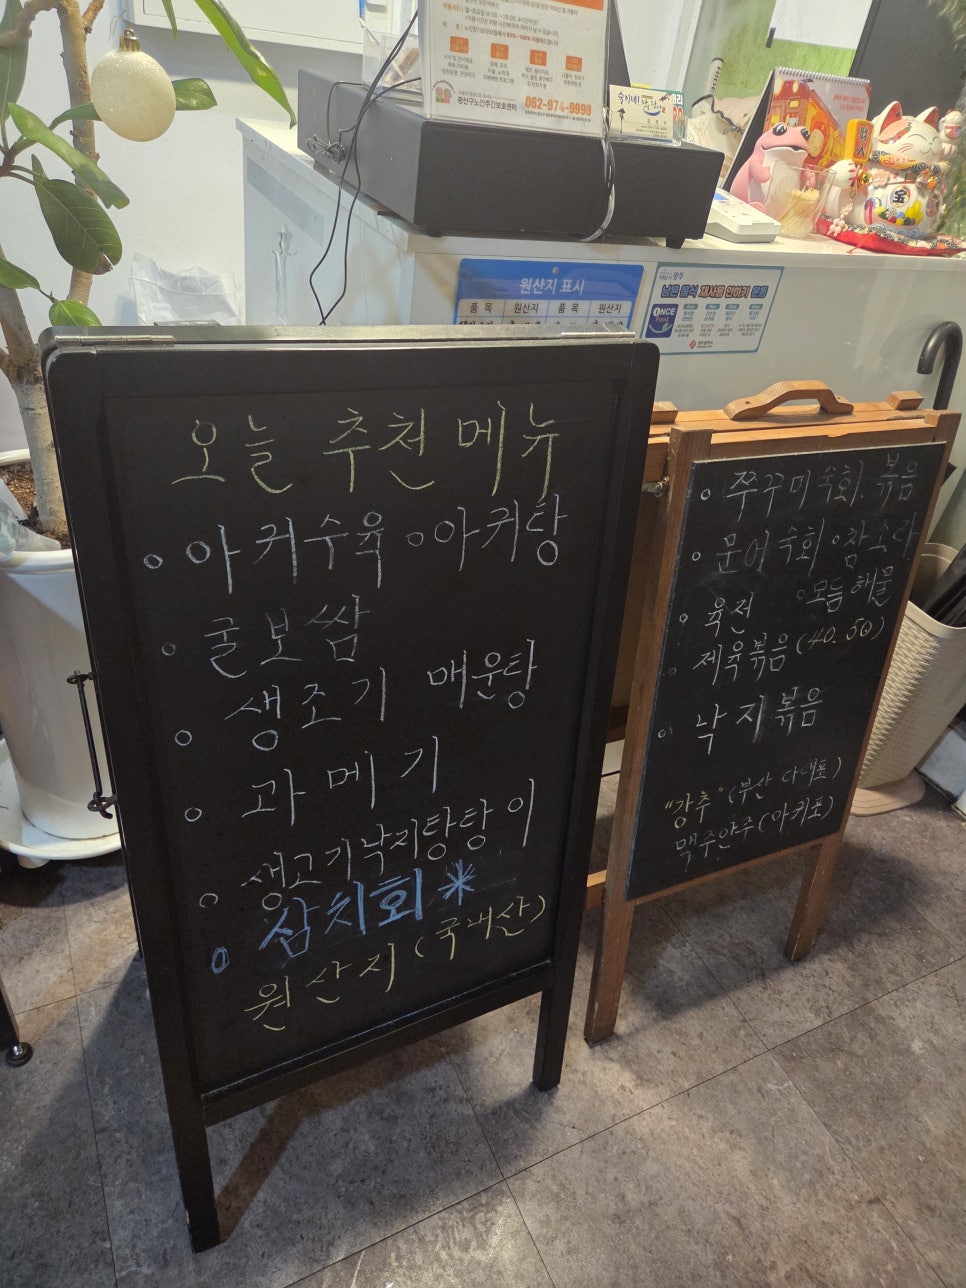 062-974-9998
광산구노인주간보호센터
원산지 표시
품 목 원산지 품 목 원산지
남은 음식 재사용 안하기 운동
ONCE
Food
오늘 추천 메뉴
아귀수육 아귀탕
굴보쌈
생조기 매운탕
과메기
생고기낙지탕탕이
삼치회
원산지(국내산)
쭈꾸미숙회.볶음
문어숙회 참소라
육전 모듬해물
제육볶음(40.50)
낙지볶음
"강추"(부산다대포)
맥주안주(아귀포)